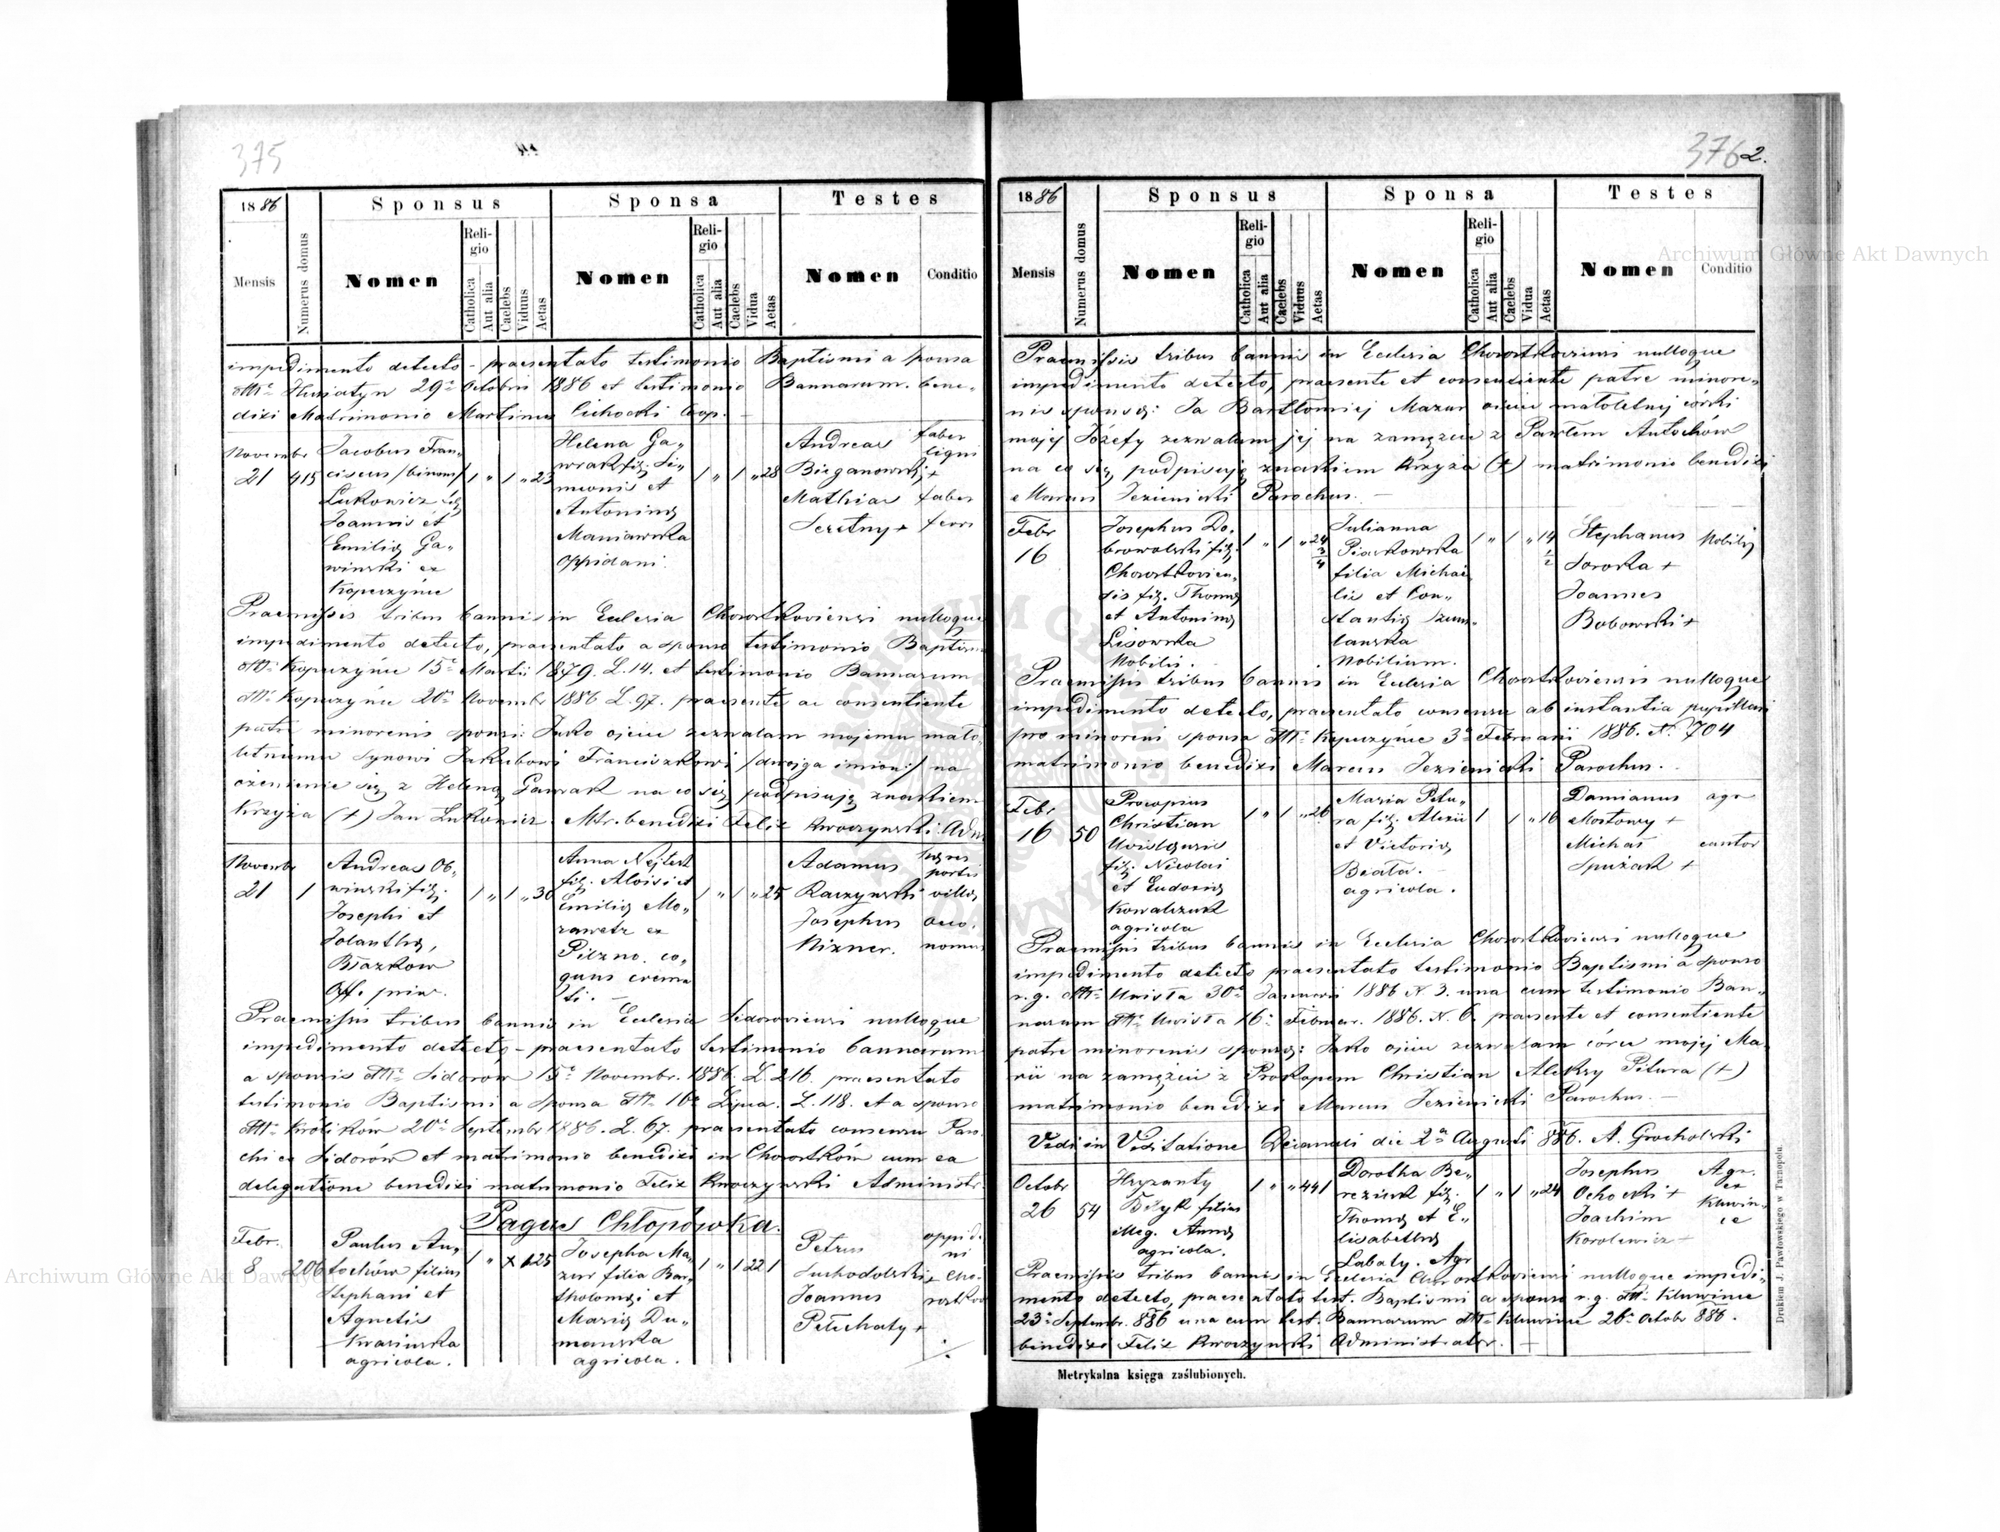 375
1886
Mensis
Numerus domus
Sponsus
Nomen
Religio
Catholica
Aut alia
Caelebs
Viduus
Aetas
Sponsa
Nomen
Religio
Catholica
Aut alia
Caelebs
Vidua
Aetas
Testes
Nomen
Conditio
impedimento detecto - praesentato testimonio Baptismi a sponsa
Husiatyn 29 Octobris 1886 et testimonio Bannorum bene-
dixi Matrimonio Martinus Cichocki Coop.
Novembr
21
415
Jacobus Fran-
ciscus /binom/
Łukowicz fil.
Joannis et
Emilię Ga-
winski ex
Kopyczyńce
1 " 1 " 23
Helena Ga-
wrak fil. Si-
meonis et
Antoninę
Maniawska
oppidani.
1 " 1 " 28
Andreas
Bieganowski +
Mathias
Szeliny +
faber
ligni
faber
ferri
Praemissis tribus bannis in Ecclesia Chorostkoviensi nulloque
impedimento detecto, praesentato a sponso testimonio Baptismi
Kopyczyńce 15 Martii 1879. L.14. et testimonio Bannorum
Kopyczyńce 20 Novembr 1886 L.97. praesente ac consentiente
patre minorenis sponsi: Jako ojciec zezwalam mojemu mało-
letniemu synowi Jakubowi Franciszkowi /dwojga imion/ na
ożenienie się z Heleną Gawrak na co się podpisuję znakiem
Krzyża (+) Jan Łukowicz. Mtr. benedixi Felix Kwoczynski Adm
Novembr
21
1
Andreas Ob-
winski fil.
Josephi et
Jolanthę,
Błazkow
Off. priv.
1 " 1 " 30
Anna Nejtek
fil. Aloisi et
Emilię Mo-
rawetz ex
Pilzno. co-
quus crema
ti. -
1 " 1 " 25
Adamus
Raczynski
Josephus
Nizner.
villę
oeco-
nomus
Praemissis tribus bannis in Ecclesia Sidoroviensi nulloque
impedimento detecto - praesentato testimonio bannorum
a sponsis Sidorow 15 Novembr. 1886. L.216. praesentato
testimonio Baptismi a sponsa 10 Lipca. L.118. et a sponso
Królików 20 Septembr 1886. L.67. praesentato consensu Paro-
chi ex Sidorów et matrimonio benedixi in Chorostków cum ea
delegatione benedixi matrimonio Felix Kwoczynski Administr.
Pagus Chłopówka.
Febr.
8
206
Paulus An-
tochów filius
Stephani et
Agnetis
Krasinska
agricola.
1 " X 1 25
Josepha Ma-
zur filia Bar-
tholomęi et
Marię Du-
manska
agricola.
1 " 1 22 1
Petrus
Suchodolski +
Joannes
Pełechaty +
oppida-
ni
Cho-
rostkow
376 2.
1886
Mensis
Numerus domus
Sponsus
Nomen
Religio
Catholica
Aut alia
Caelebs
Viduus
Aetas
Sponsa
Nomen
Religio
Catholica
Aut alia
Caelebs
Vidua
Aetas
Testes
Nomen
Conditio
Praemissis tribus bannis in Ecclesia Chorostkoviensi nulloque
impedimento detecto, praesente et consentiente patre minore-
nis sponsę: Ja Bartłomiej Mazur ojciec małoletniej córki
mojej Józefy zezwalam jej na zamęzcie z Pawłem Antochów
na co się podpisuję znakiem Krzyża (+) matrimonio benedixi
Marcus Jezienicki Parochus. -
Febr
16
Josephus Do-
browolski fil.
Chorostkovien-
sis fil. Thomę
et Antoninę
Lisowska
Nobilis.
1 " 1 " 24 3/4
Julianna
Piaskowska
filia Michaë-
lis et Con-
stantię Szum-
lanska
Nobilium.
1 " 1 " 14 1/2
Stephanus
Soroka +
Joannes
Bobowski +
Nobiles
Praemissis tribus bannis in Ecclesia Chorostkoviensis nulloque
impedimento detecto, praesentato consensu ab instantia pupillari
pro minoreni sponsa Kopyczyńce 3 Februarii 1886. N. 704
matrimonio benedixi Marcus Jezienicki Parochus.
Febr
16
50
Procopius
Christian
Uvislensis
fil. Nicolai
et Eudoxię
Kowalczuk
agricola
1 " 1 " 26
Maria Pitu-
ra fil. Alexii
et Victorię
Biała. -
agricola.
1 1 " 16
Damianus
Mostowy +
Michaś
Spużak +
agr
cantor
Praemissis tribus bannis in Ecclesia Chorostkoviensi nulloque
impedimento detecto praesentato testimonio Baptismi a sponso
r.g. Uwisła 30 Januarii 1886 N. 3. una cum testimonio Ban-
norum Uwisła 16 Februar. 1886. N. 6. praesente et consentiente
patre minorenis sponsę: Jako ojciec zezwalam córce mojej Ma-
rii na zamęzcie z Prokopem Christian Aleksy Pitura (+)
matrimonio benedixi Marcus Jezienicki Parochus. -
Vidi in Visitatione Decanali die 2 Augusti 886. A. Grocholski
Octobr
26
54
Hryzanty
Bełyk filius
illeg. Annę
agricola.
1 " " 44 1
Dorotha Be-
reziuk fil.
Thomę et E-
lisabethę
Labaty. Agr
1 " 1 " 24
Josephus
Ochocki +
Joachim
Korolewicz +
Agr.
ex
Kluwin-
ce
Praemissis tribus bannis in Ecclesia Chorostkoviensi nulloque impedi-
mento detecto, praesentato test. Baptismi a sponso r.g. Kluwince
23 Septembr. 886 una cum test. Bannorum Kluwince 26 Octobr 886.
benedixi Felix Kwoczynski Administrator. -
Metrykalna księga zaślubionych.
Drukiem J. Pawłowskiego w Tarnopolu.
Archiwum Główne Akt Dawnych
Archiwum Główne Akt Dawnych